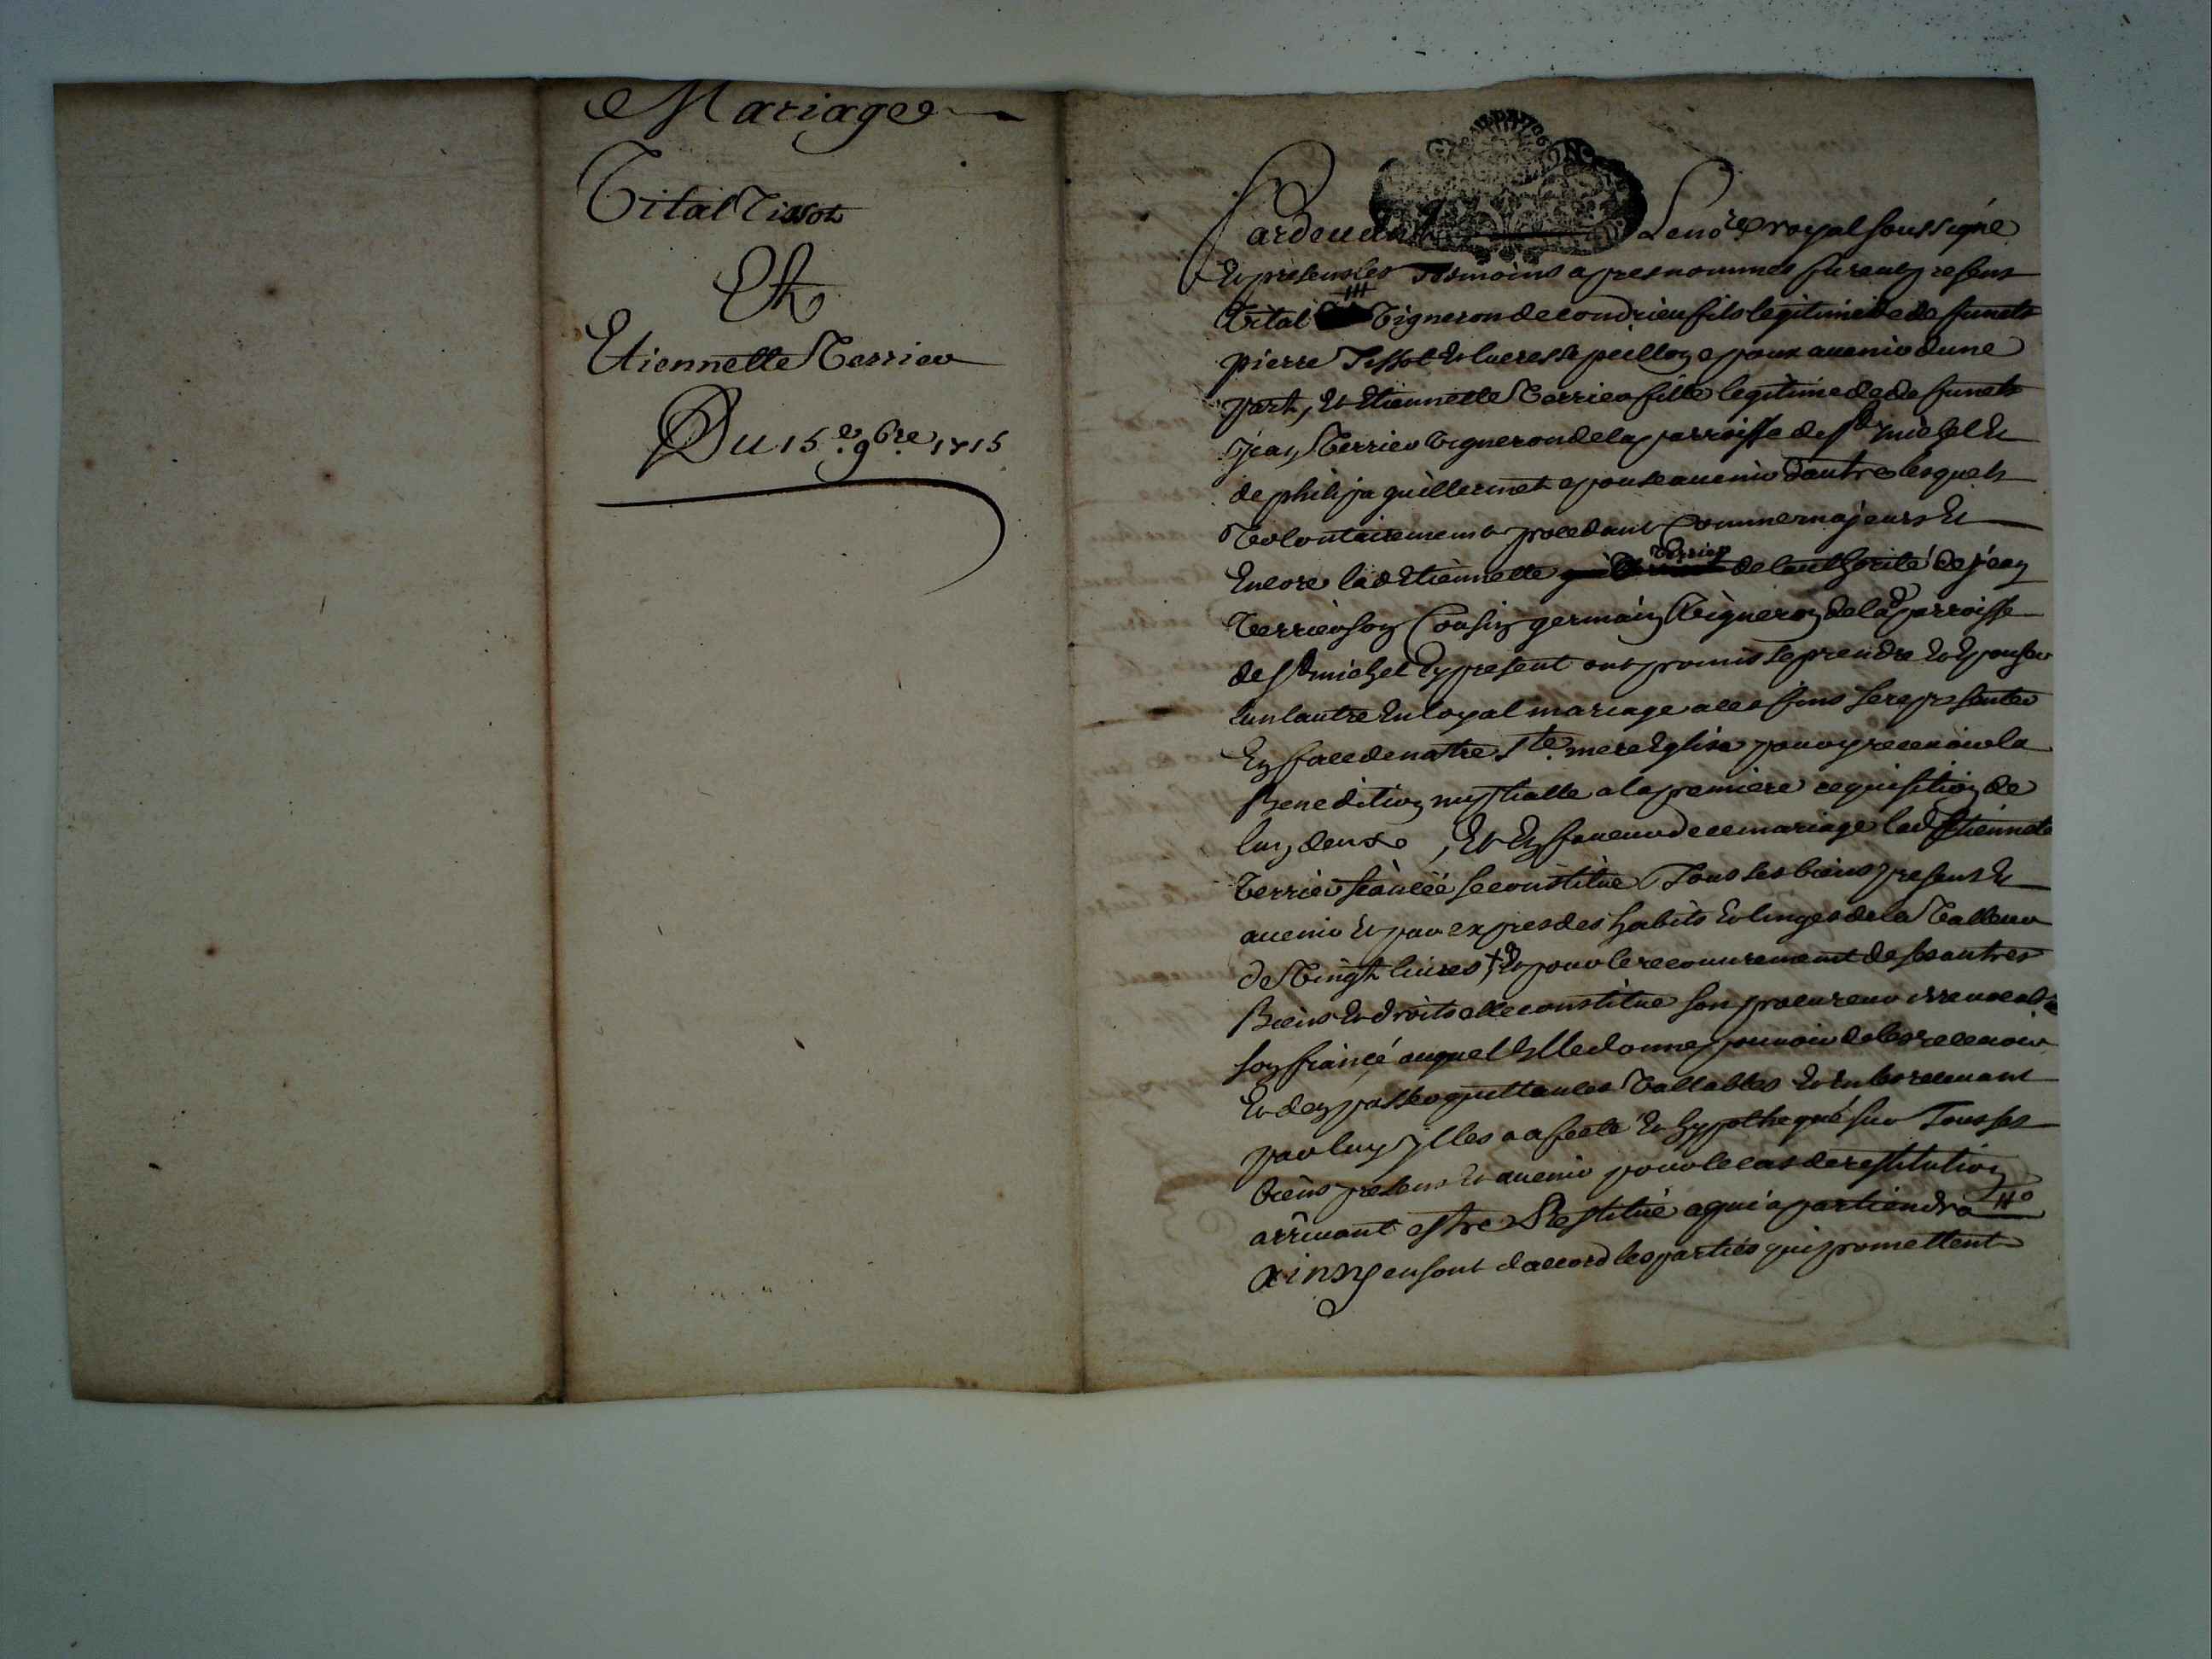 Mariage
Vital Tissot
Et
Etiennette Verrier
Du 15.e 9bre. 1715
Pardevant Le no.re royal soussigné
Et presens les Tesmoins apres nommes furent presens
Vital Vigneron de condrieu fils legitime de defunets
pierre Tissot et lucresse peillon epoux avenir dune
part, Et Etiennette Verrier fille legitime de defunets
jean Verrier vigneron de la parroisse de st michel Et
de philipa guillermet epouse avenir dautre lesquels
Volontairement procedant Comme majeurs Et
Encore lad Etiennette Verrier de lauthorité de jean
Verrier son Cousin germain Vigneron de lad parroisse
de st michel Ey present ont promis se prendre Et Epouser
lun lautre En loyal mariage a ces fins se representer
En face de nostre ste. mere Eglise pour y recevoir la
Benedition nuptialle a la premiere requisition de
lun deux , Et En faveur de ce mariage lad Etiennette
Verrier fiancéé se constitue Tous ses biens presens Et
avenir Et par expres des habits Et linges de la Valleur
de Vingt livres + Et pour le recouvrement de ses autres
Biens Et droits elle constitue son procureur irrevocable
son fiancé auquel Elle donne pouvoir de les recevoir
Et den passer quittances Vallables Et En les recevant
par luy Illes a afecté Et hypothequé sur Tous ses
biens presens Et avenir pour le cas de restitution
arrivant estre Restitué a qui apartiendra
ainsy en sont daccord les parties qui promettent